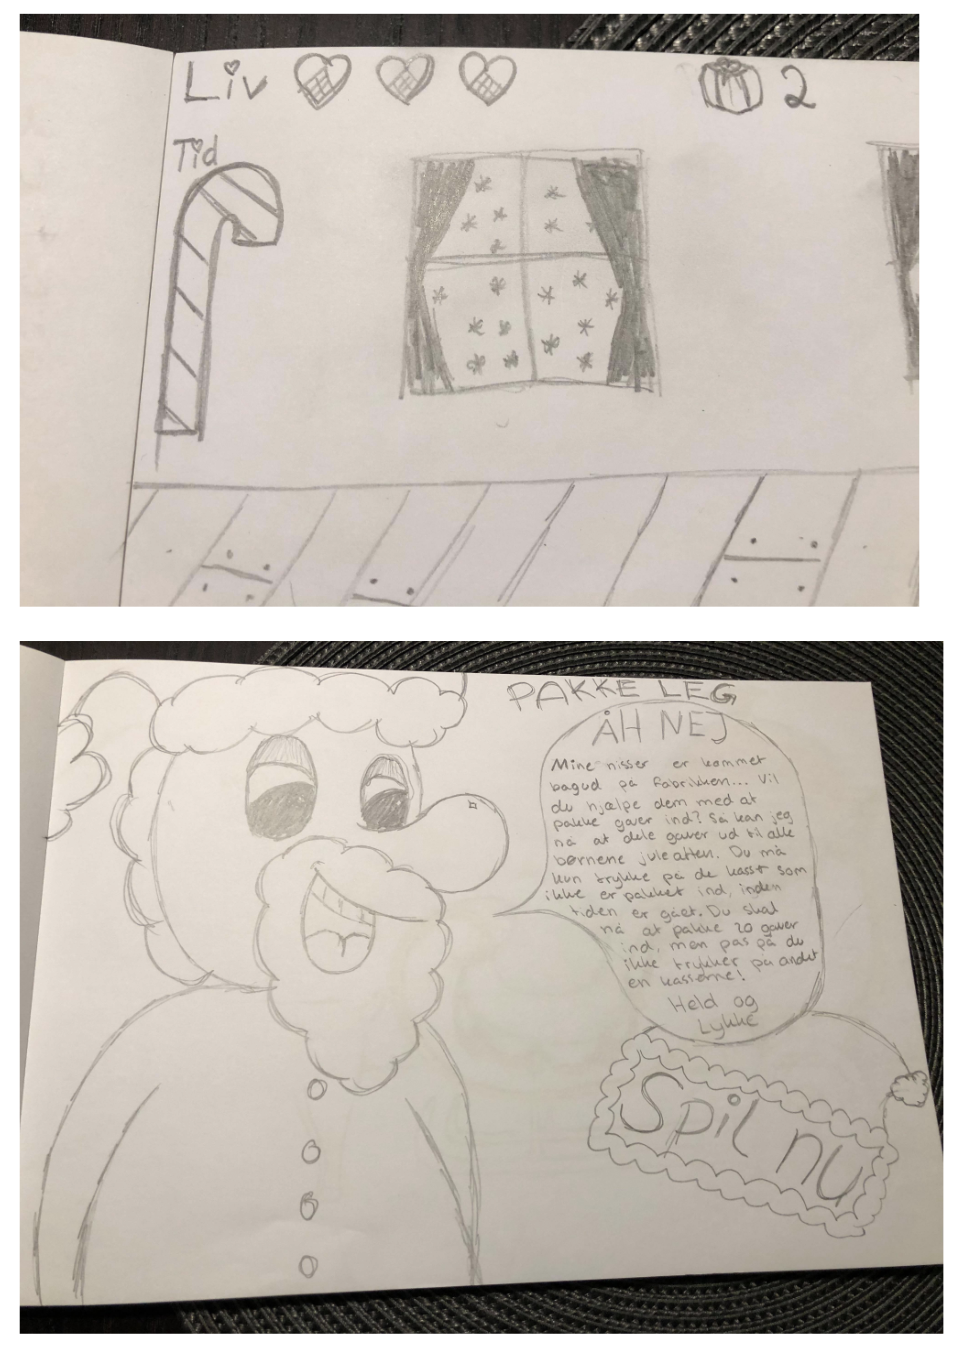 Liv 2
Tid
PAKKE LEG
ÅH NEJ
Mine nisser er kommet
bagud på fabrikken... Vil
du hjælpe dem med at
pakke gaver ind? Så kan jeg
nå at dele gaver ud til alle
børnene juleaften. Du må
kun trykke på de kasst som
ikke er pakket ind, inden
tiden er gået. Du skal
nå at pakke 20 gaver
ind, men pas på du
ikke trykker på andet
en kasserne!
Held og
Lykke
Spil nu